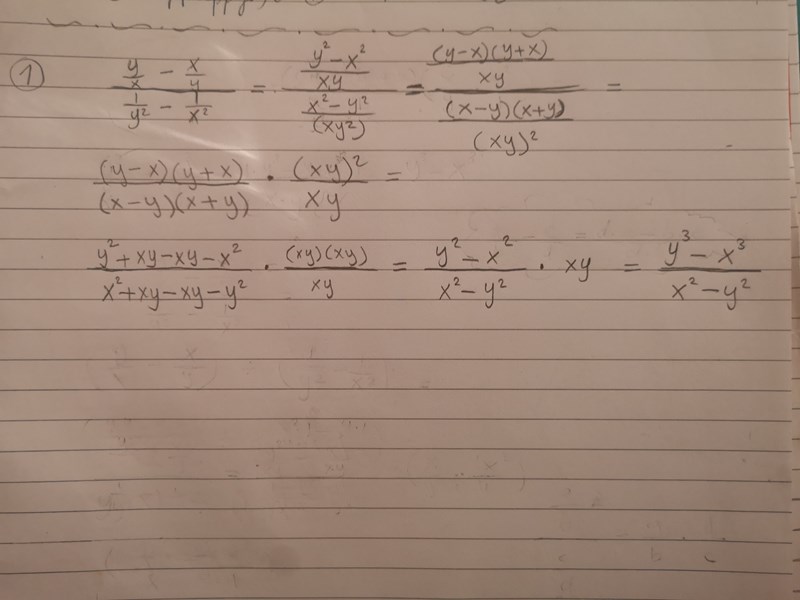 ① (y/x − x/y)/(1/y² − 1/x²) = ((y² − x²)/(xy))/((x² − y²)/(xy²)) = (((y−x)(y+x))/(xy))/(((x−y)(x+y))/((xy)²)) =
((y−x)(y+x))/((x−y)(x+y)) · (xy)²/(xy) =
(y² + xy − xy − x²)/(x² + xy − xy − y²) · ((xy)(xy))/(xy) = (y² − x²)/(x² − y²) · xy = (y³ − x³)/(x² − y²)